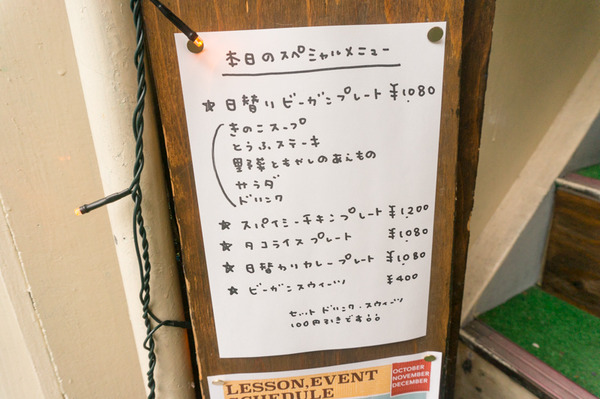 本日のスペシャルメニュー
★ 日替りビーガンプレート ¥1080
きのこスープ
とうふステーキ
野菜ともやしのあえもの
サラダ
ドリンク
★ スパイシーチキンプレート ¥1200
★ タコライスプレート ¥1080
★ 日替わりカレープレート ¥1080
★ ビーガンスウィーツ ¥400
セットドリンク・スウィーツ
100円引きです
LESSON, EVENT
SCHEDULE
OCTOBER
NOVEMBER
DECEMBER